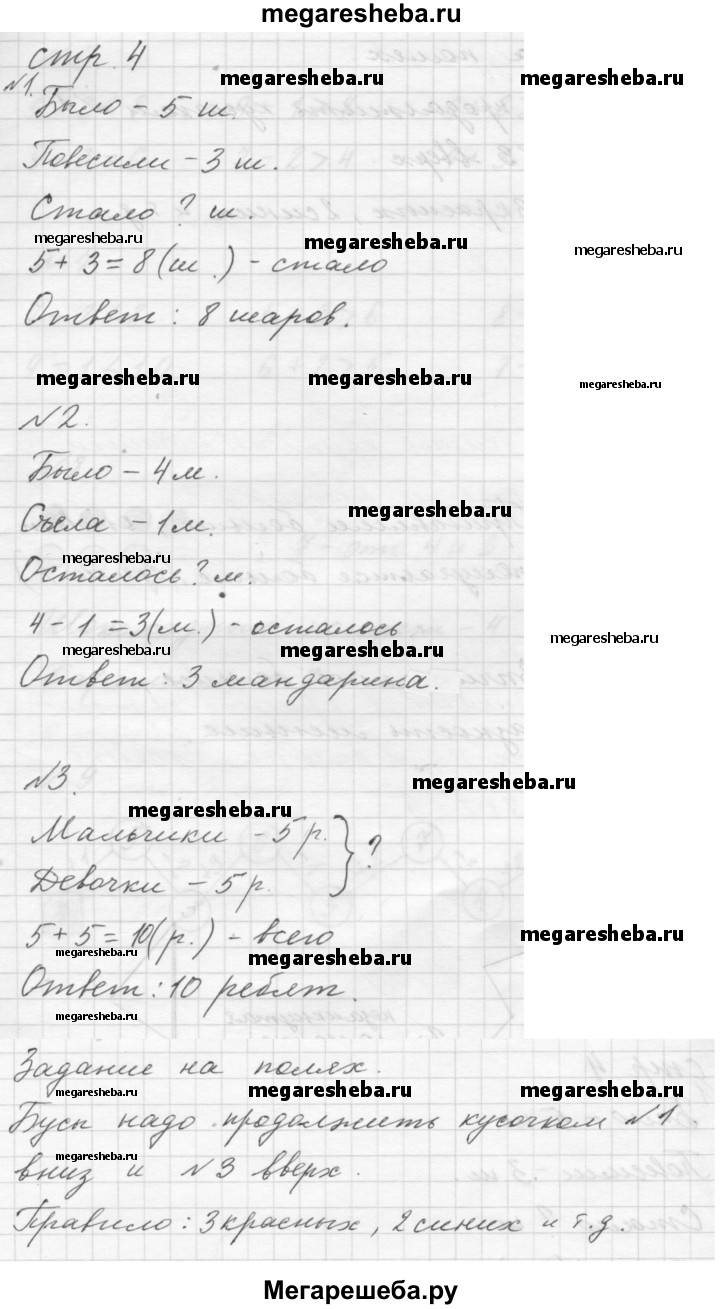 megaresheba.ru
стр. 4
megaresheba.ru megaresheba.ru
№1.
Было – 5 ш.
Повесили – 3 ш.
Стало ? ш.
megaresheba.ru megaresheba.ru megaresheba.ru
5 + 3 = 8 (ш.) - стало
Ответ : 8 шаров.
megaresheba.ru megaresheba.ru megaresheba.ru
№2.
Было – 4 м.
megaresheba.ru
Съела – 1 м.
megaresheba.ru
Осталось ? м.
4 - 1 = 3 (м.) - осталось
megaresheba.ru megaresheba.ru megaresheba.ru
Ответ : 3 мандарина.
№3.
megaresheba.ru
megaresheba.ru
Мальчики – 5 р. } ?
Девочки – 5 р.
5 + 5 = 10 (р.) - всего
megaresheba.ru megaresheba.ru megaresheba.ru
Ответ : 10 ребят.
megaresheba.ru
Задание на полях.
megaresheba.ru megaresheba.ru megaresheba.ru
Бусы надо продолжить кусочком №1
вниз и №3 вверх.
megaresheba.ru
Правило : 3 красных, 2 синих и т.д.
Мегарешеба.ру